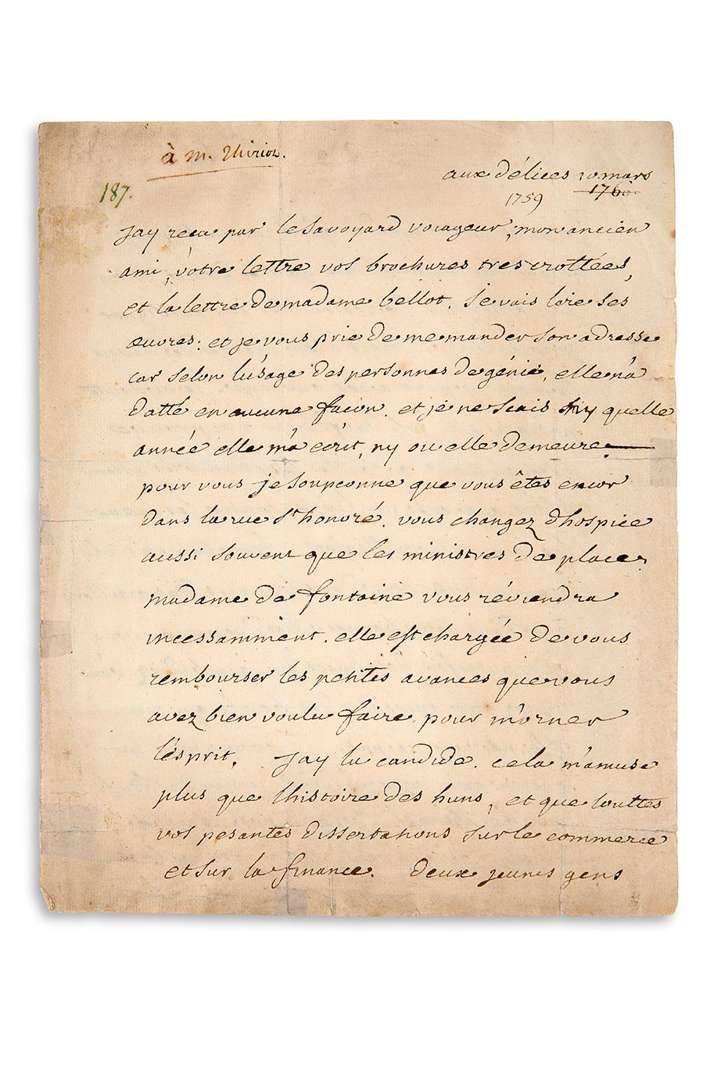 à M. Thiriot.
187.
aux délices 10 mars
1759 1760
Jay receu par le savoyard voiageur, mon ancien
ami, votre lettre vos brochures tres crottées,
et la lettre de madame bellot. Je vais lire ses
œuvres: et je vous prie de me mander son adresse
car selon lu'sage des personnes de génie, elle n'a
datté en aucune facon. et je ne scais ny quelle
année elle m'a ecrit, ny ou elle demeure.
pour vous je soupconne que vous êtes encor
dans la rue St honoré. vous changez d'hospice
aussi souvent que les ministres de place.
Madame de fontaine vous reviendra
incessamment. elle est chargée de vous
rembourser les petites avances que vous
avez bien voulu faire pour m'orner
l'esprit. Jay lu candide. cela m'amuse
plus que l'histoire des huns, et que touttes
vos pesantes dissertations sur le commerce
et sur la finance. deux jeunes gens